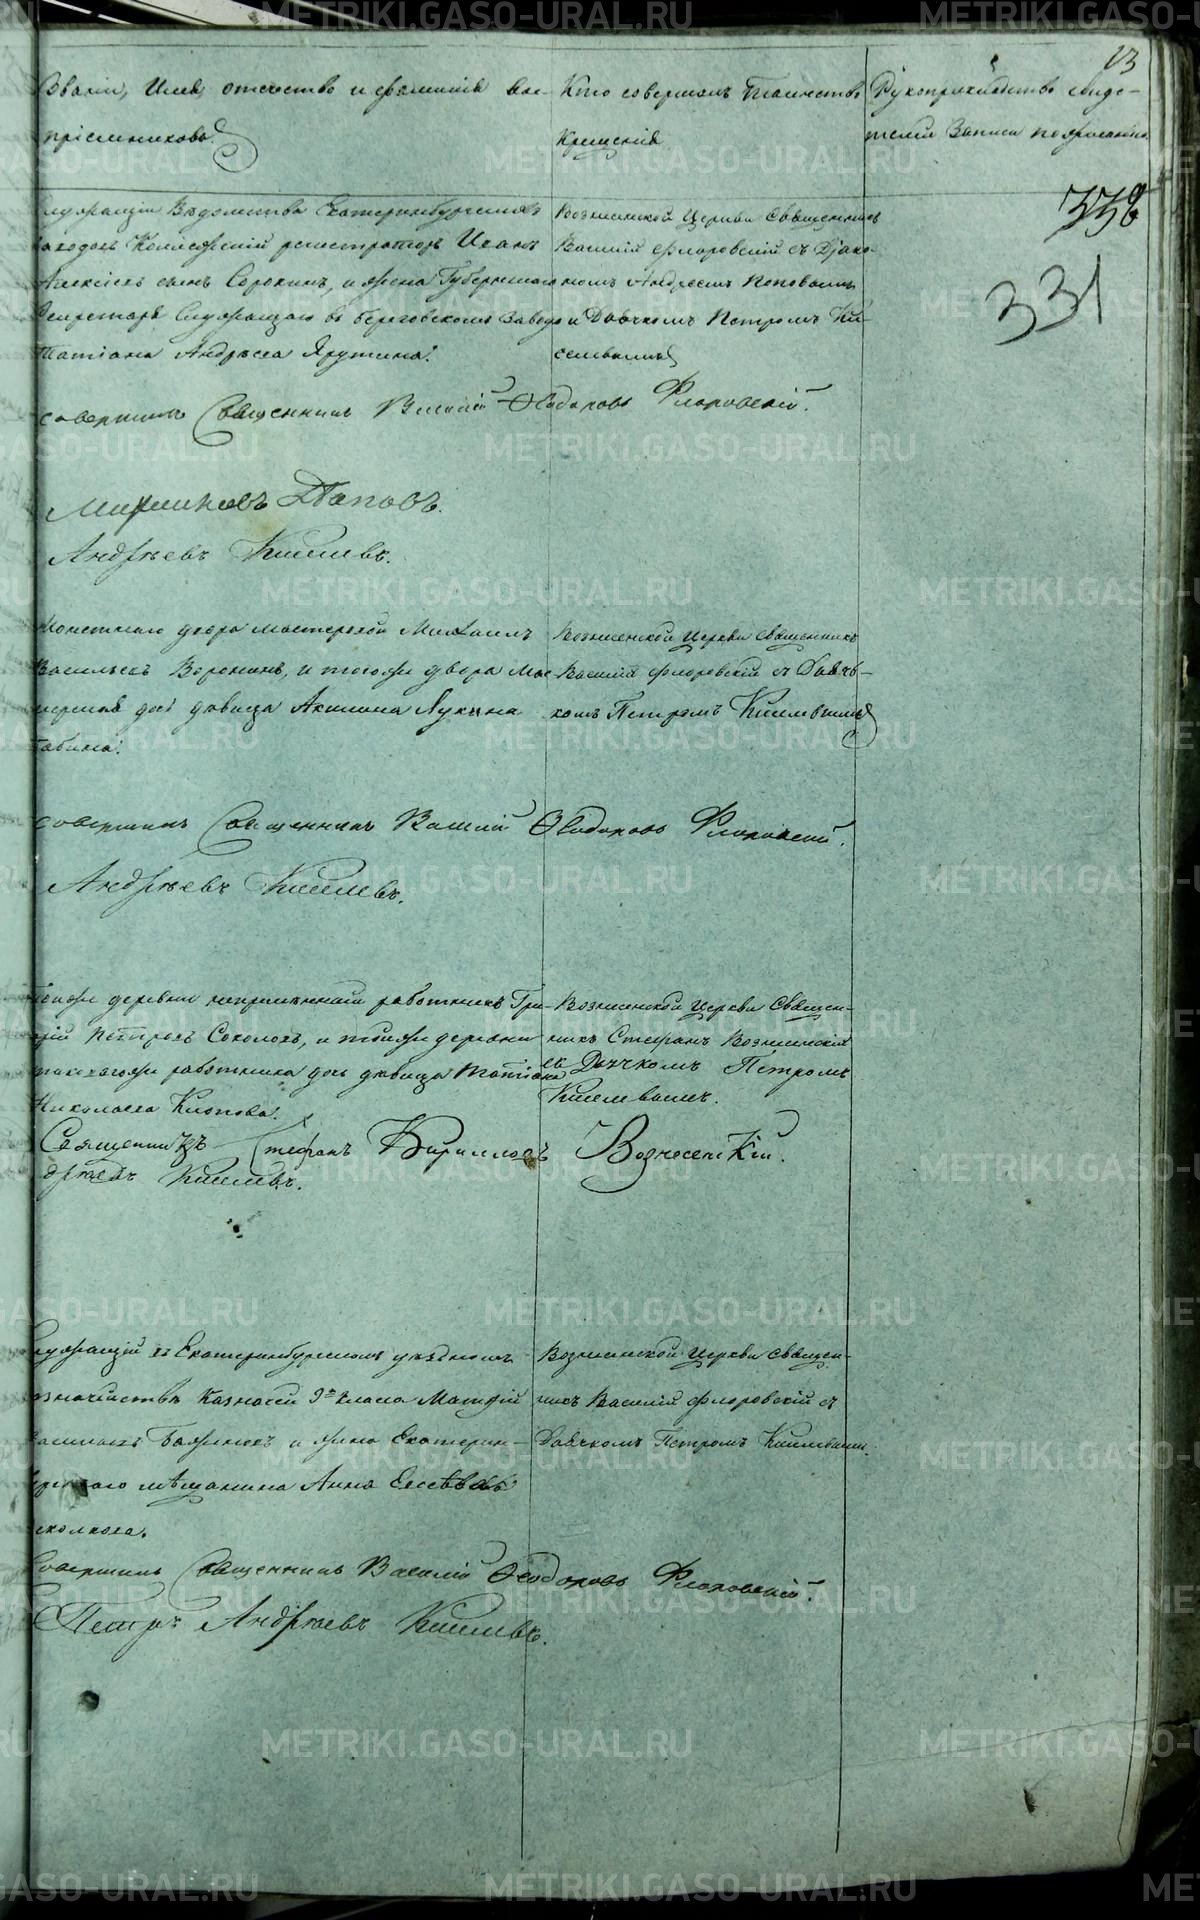 13
Званiи, Имя, отечество и фамилiя вос-
прiемниковъ.
Кто совершалъ Таинство
Крещенiя
Рукоприкладство свиде-
телей Записи по желанiю
336
331
Ведомства Екатеринбургскихъ
заводовъ регистраторъ Иванъ
Алексѣевъ сынъ Сорокинъ, и жена Губернскаго
Секретаря Служащаго въ Березовскомъ Заводе
Татiана Андрѣева Ярутина.
Вознесенской Церкви Священникъ
Василiй Флоровскiй съ Дiако-
номъ Андреемъ Поповымъ
и Дьячкомъ Петромъ Ки-
селевымъ
совершилъ Священникъ Василiй Ѳеодоровъ Флоровскiй.
Поповъ.
Андрѣевъ Киселевъ.
Монетнаго двора мастерской Михаилъ
Васильевъ Воронинъ, и тогоже двора Мас-
дочь девица Акилина Лукина
Вознесенской Церкви Священникъ
Василiй Флоровскiй съ Дьяч-
комъ Петромъ Киселевымъ
совершилъ Священникъ Василiй Ѳеодоровъ Флоровскiй.
Андрѣевъ Киселевъ.
деревни непременный работникъ Гри-
горiй Петровъ Соколовъ, и тойже деревни
работника дочь девица Татiана
Николаева Клопова.
Вознесенской Церкви Священ-
никъ Стефанъ Вознесенскiй
съ Дьячкомъ Петромъ
Киселевымъ.
Священникъ Стефанъ Кирилловъ Вознесенскiй.
Киселевъ.
Служащiй въ Екатеринбургскомъ уездномъ
Казначействѣ Казначей 9го класса Матвей
Васильевъ и жена Екатерин-
бургскаго мѣщанина Анна
Вознесенской Церкви Священ-
никъ Василiй Флоровскiй съ
Дьячкомъ Петромъ Киселевымъ.
Совершилъ Священникъ Василiй Ѳеодоровъ Флоровскiй.
Петръ Андрѣевъ Киселевъ.
METRIKI.GASO-URAL.RU